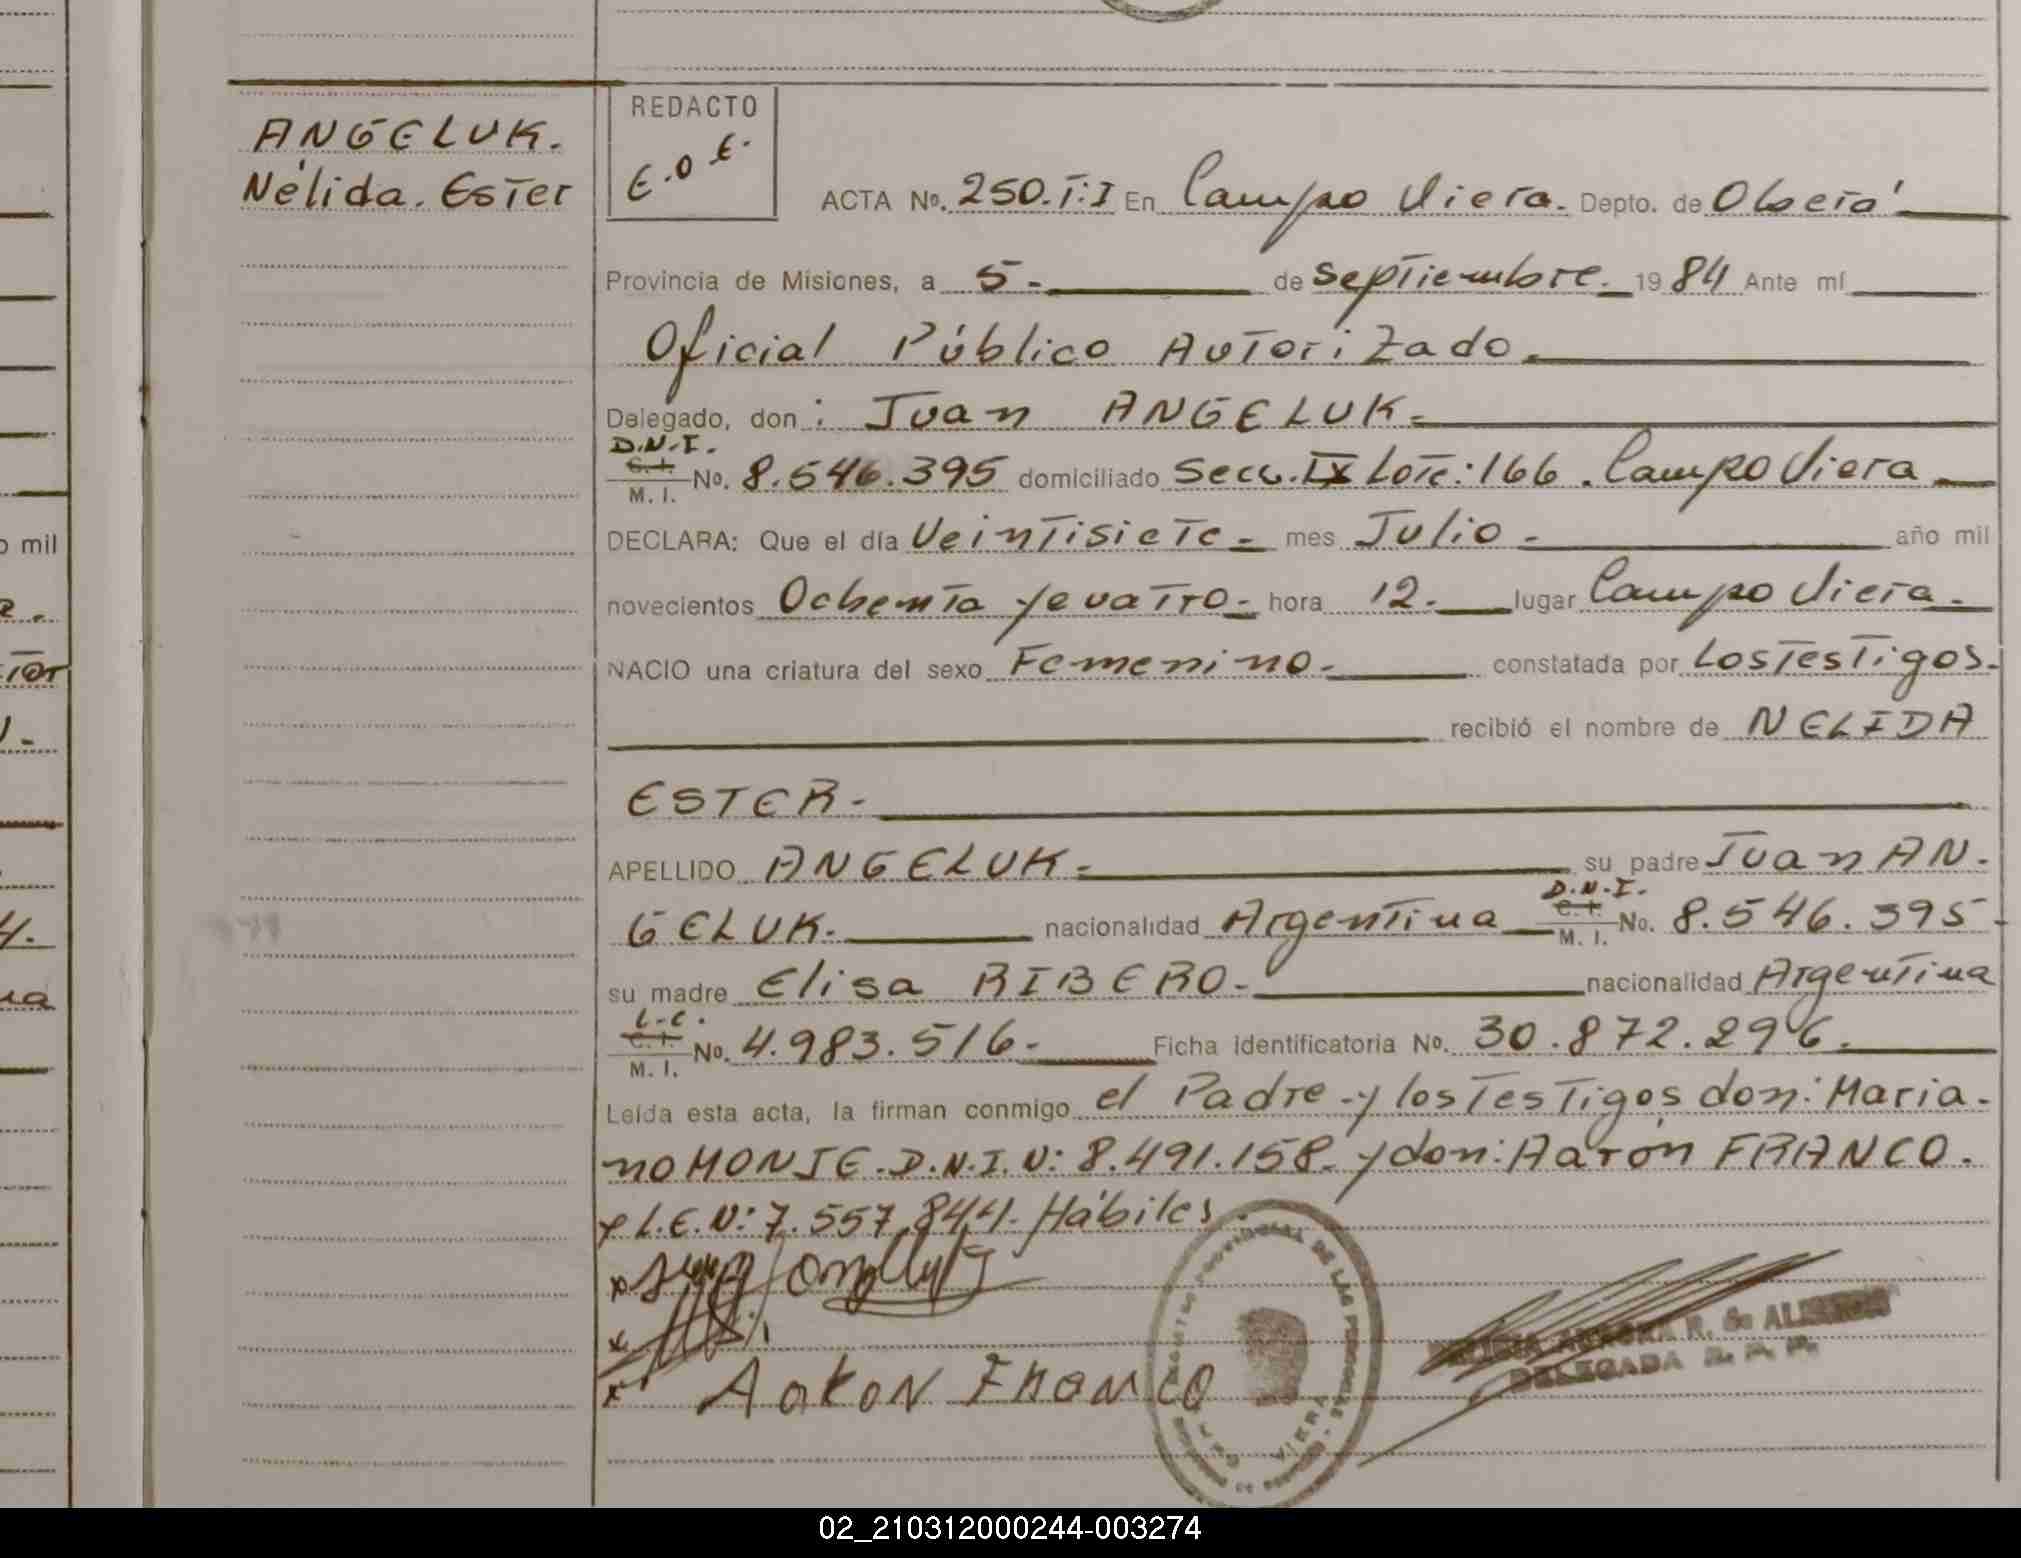 ANGELUK.
Nélida. Ester
REDACTO
E.O.E.
ACTA No. 250.T:I En Campo Viera. Depto. de Oberá
Provincia de Misiones, a 5- de Septiembre. 1984 Ante mí
Oficial Público Autorizado.
Delegado, don: Juan ANGELUK-
D.N.I.
C.I.
M. I. No. 8.546.395 domiciliado Secc. IX Lote: 166. Campo Viera
DECLARA: Que el día Veintisiete- mes Julio- año mil
novecientos Ochenta y cuatro- hora 12. lugar Campo Viera.
NACIO una criatura del sexo Femenino. constatada por Los Testigos.
recibió el nombre de NELIDA
ESTER-
APELLIDO ANGELUK- su padre Juan AN-
D.N.I.
C.I.
GELUK. nacionalidad Argentina M. I. No. 8.546.395-
su madre Elisa RIBERO- nacionalidad Argentina
L.C.
C.I.
M. I. No. 4.983.516- Ficha identificatoria No. 30.872.296.
Leída esta acta, la firman conmigo el Padre y los Testigos don: Maria-
no MONJE. D.N.I. N: 8.491.158. y don: Aarón FRANCO.
L.E.N: 7.557.844. Hábiles.
AaRON FRANCO
PROVINCIAL DE LAS PERSONAS
VIERA
AURORA R. de
DELEGADA R. P. P.
o mil
02_210312000244-003274